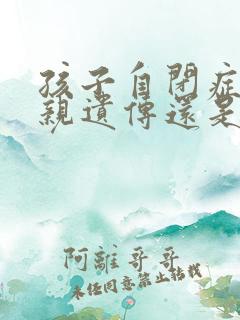 孩子自閉症
親遺傳還是
阿離哥哥
未经同意禁止转载